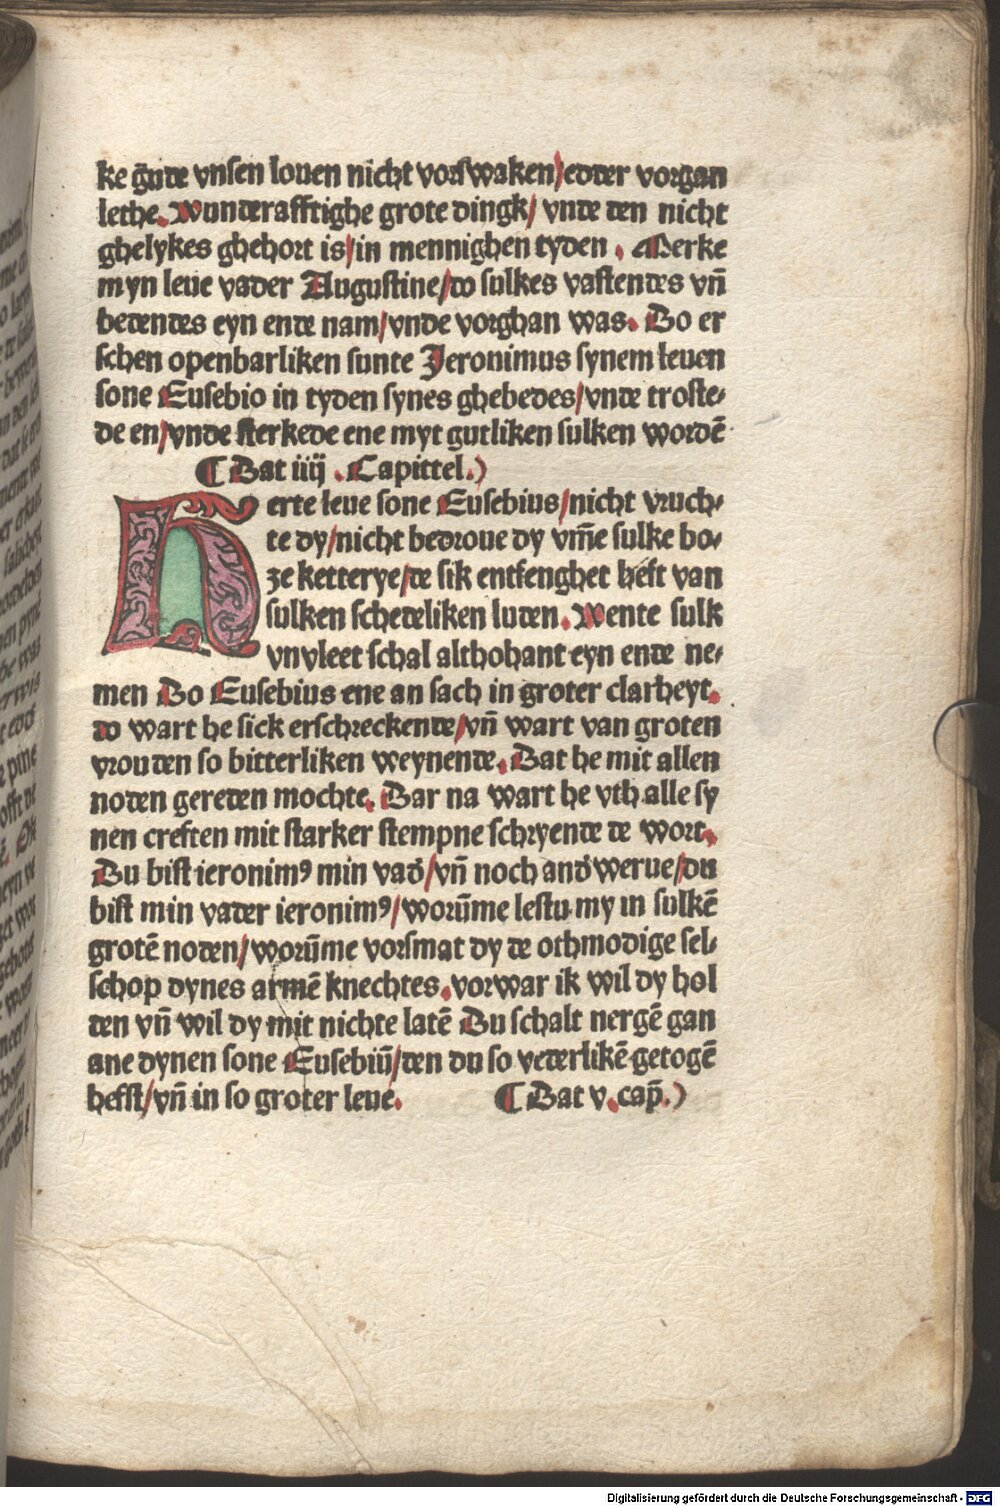 ke g̃nde vnsen louen nicht vorswaken/edder vorgan
lethe. Wunderafftighe grote dingk/ vnde den nicht
ghelykes ghehort is/in mennighen tyden . Merke
myn leue vader Augustine/do sulkes vastendes vn̄
bedendes eyn ende nam/vnde vorghan was. Do er
schen openbarliken sunte Jeronimus synem leuen
sone Eusebio in tyden synes ghebedes/vnde troste-
de en/vnde sterkede ene myt gutliken sulken wordē
¶ Dat iiij .Capittel.)
Herte leue sone Eusebius/nicht vruch-
te dy/nicht bedroue dy vm̄e sulke bo-
ze ketterye/de sik entfenghet heft van
sulken schedeliken luden. Wente sulk
vnvleet schal althohant eyn ende ne-
men Do Eusebius ene an sach in groter clarheyt.
do wart he sick erschreckende/vn̄ wart van groten
vrouden so bitterliken weynende. Dat he mit allen
noden gereden mochte. Dar na wart he vth alle sy
nen creften mit starker stempne schryende de wort.
Du bist ieronimꝰ min vad̄/vn̄ noch and̄werue/du
bist min vader ieronimꝰ/worūme lestu my in sulkē
grotē noden/worūme vorsmat dy de othmodige sel-
schop dynes armē knechtes.vorwar ik wil dy hol
den vn̄ wil dy mit nichte latē Du schalt nergē gan
ane dynen sone Eusebiū/den du so vederlikē getogē
hefst/vn̄ in so groter leue. ¶ Dat v.cap̄.)
Digitalisierung gefördert durch die Deutsche Forschungsgemeinschaft - DFG